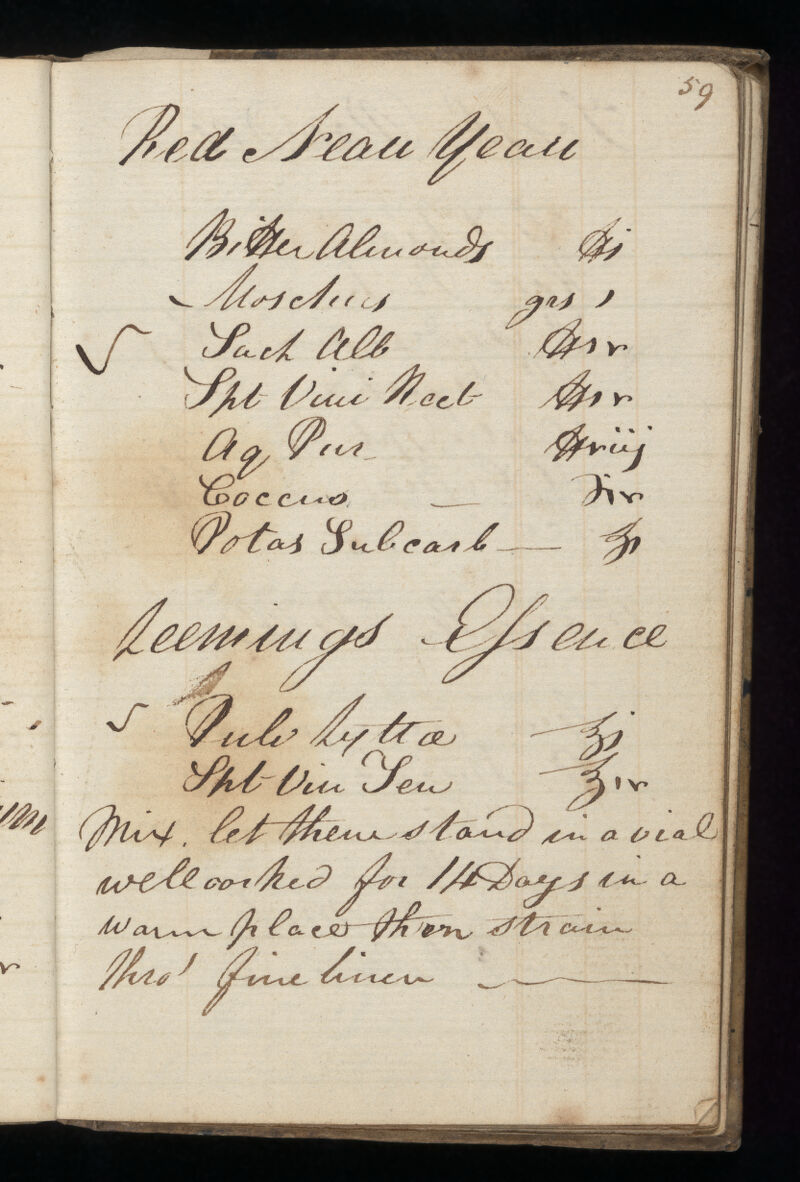 59
Red Neau Yeau
Bitter Almonds ℔j
Moschus grs 1
Sach Alb ℔iv
Spt Vini Rect ℔iv
Aq Pur ℔viij
Coccus — ʒiv
Potas Subcarb — ʒi
Leemings Essence
Pulv Lyttæ ʒj
Spt Vin Ten ʒiv
Mix. let them stand in a vial
well corked for 14 Days in a
warm place then strain
thro' fine linen